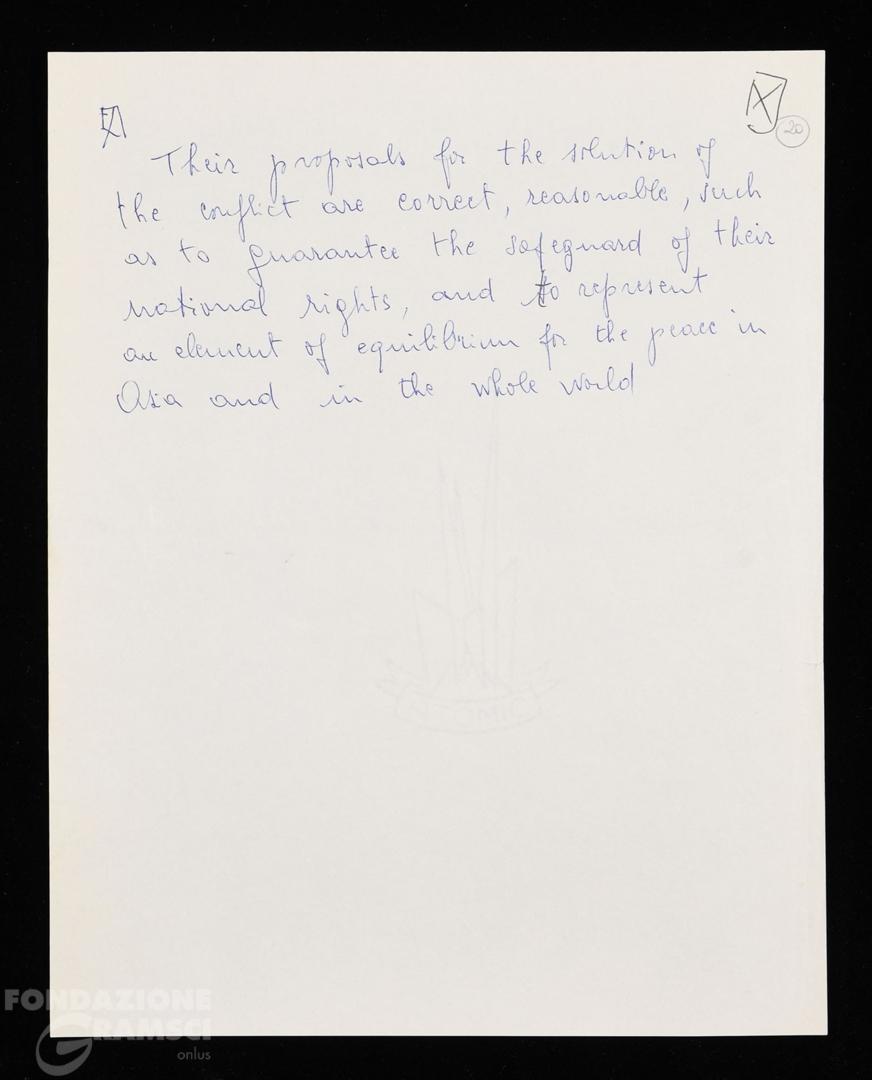 20
Their proposals for the solution of
the conflict are correct, reasonable, such
as to guarantee the safeguard of their
national rights, and to represent
an element of equilibrium for the peace in
Asia and in the whole world
FONDAZIONE
GRAMSCI
onlus